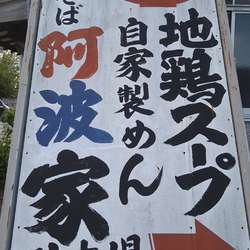 地鶏スープ
自家製めん
そば
阿波家